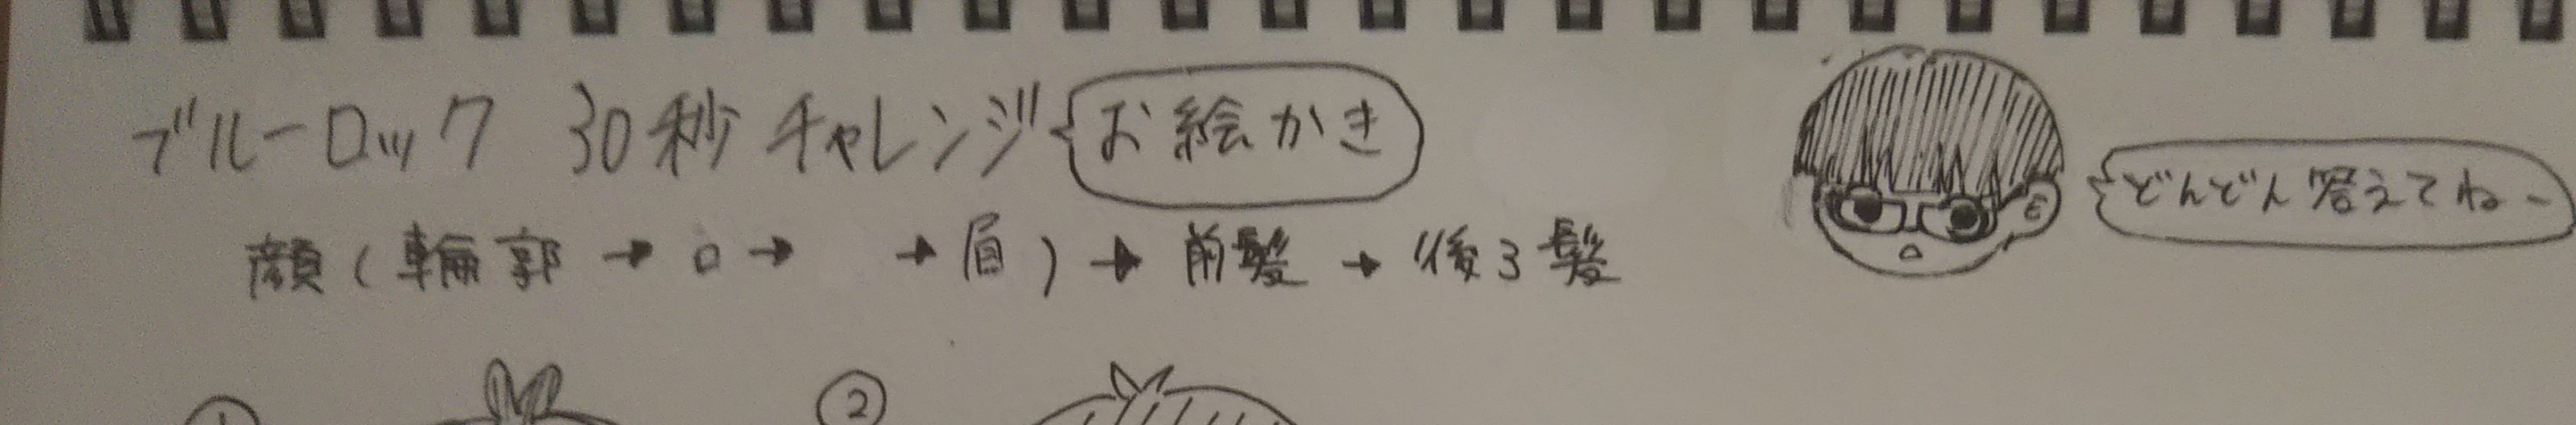 ブルーロック 30秒チャレンジ お絵かき
どんどん答えてねー
顔(輪郭→口→ →眉)→前髪→後ろ髪
① ②